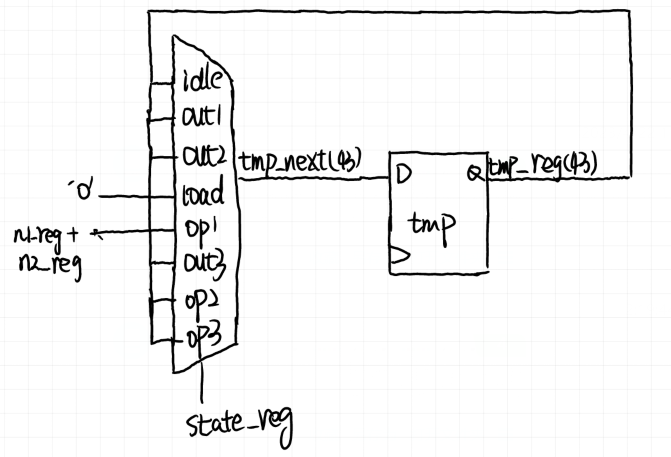 idle
out1
out2
'0'
load
n1_reg +
n2_reg
op1
out3
op2
op3
state_reg
tmp_next(43)
D
Q
tmp
tmp_reg(43)